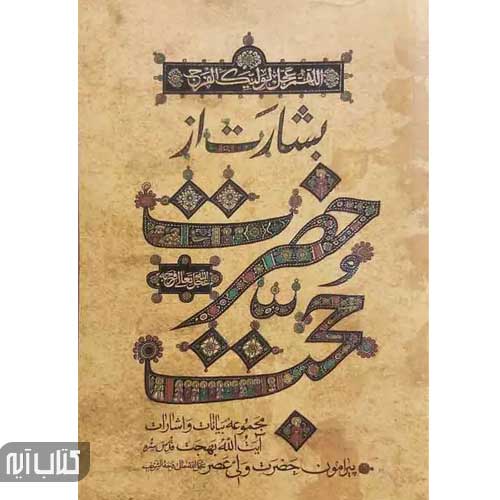 اللهم عجل لولیک الفرج
بشارت از
حضرت
عجل الله تعالی فرجه
حجت
مجموعه بیانات و اشارات
آیت الله بهجت قدس سره
پیرامون حضرت ولی عصر عجل الله تعالی فرجه الشریف
کتاب آیه